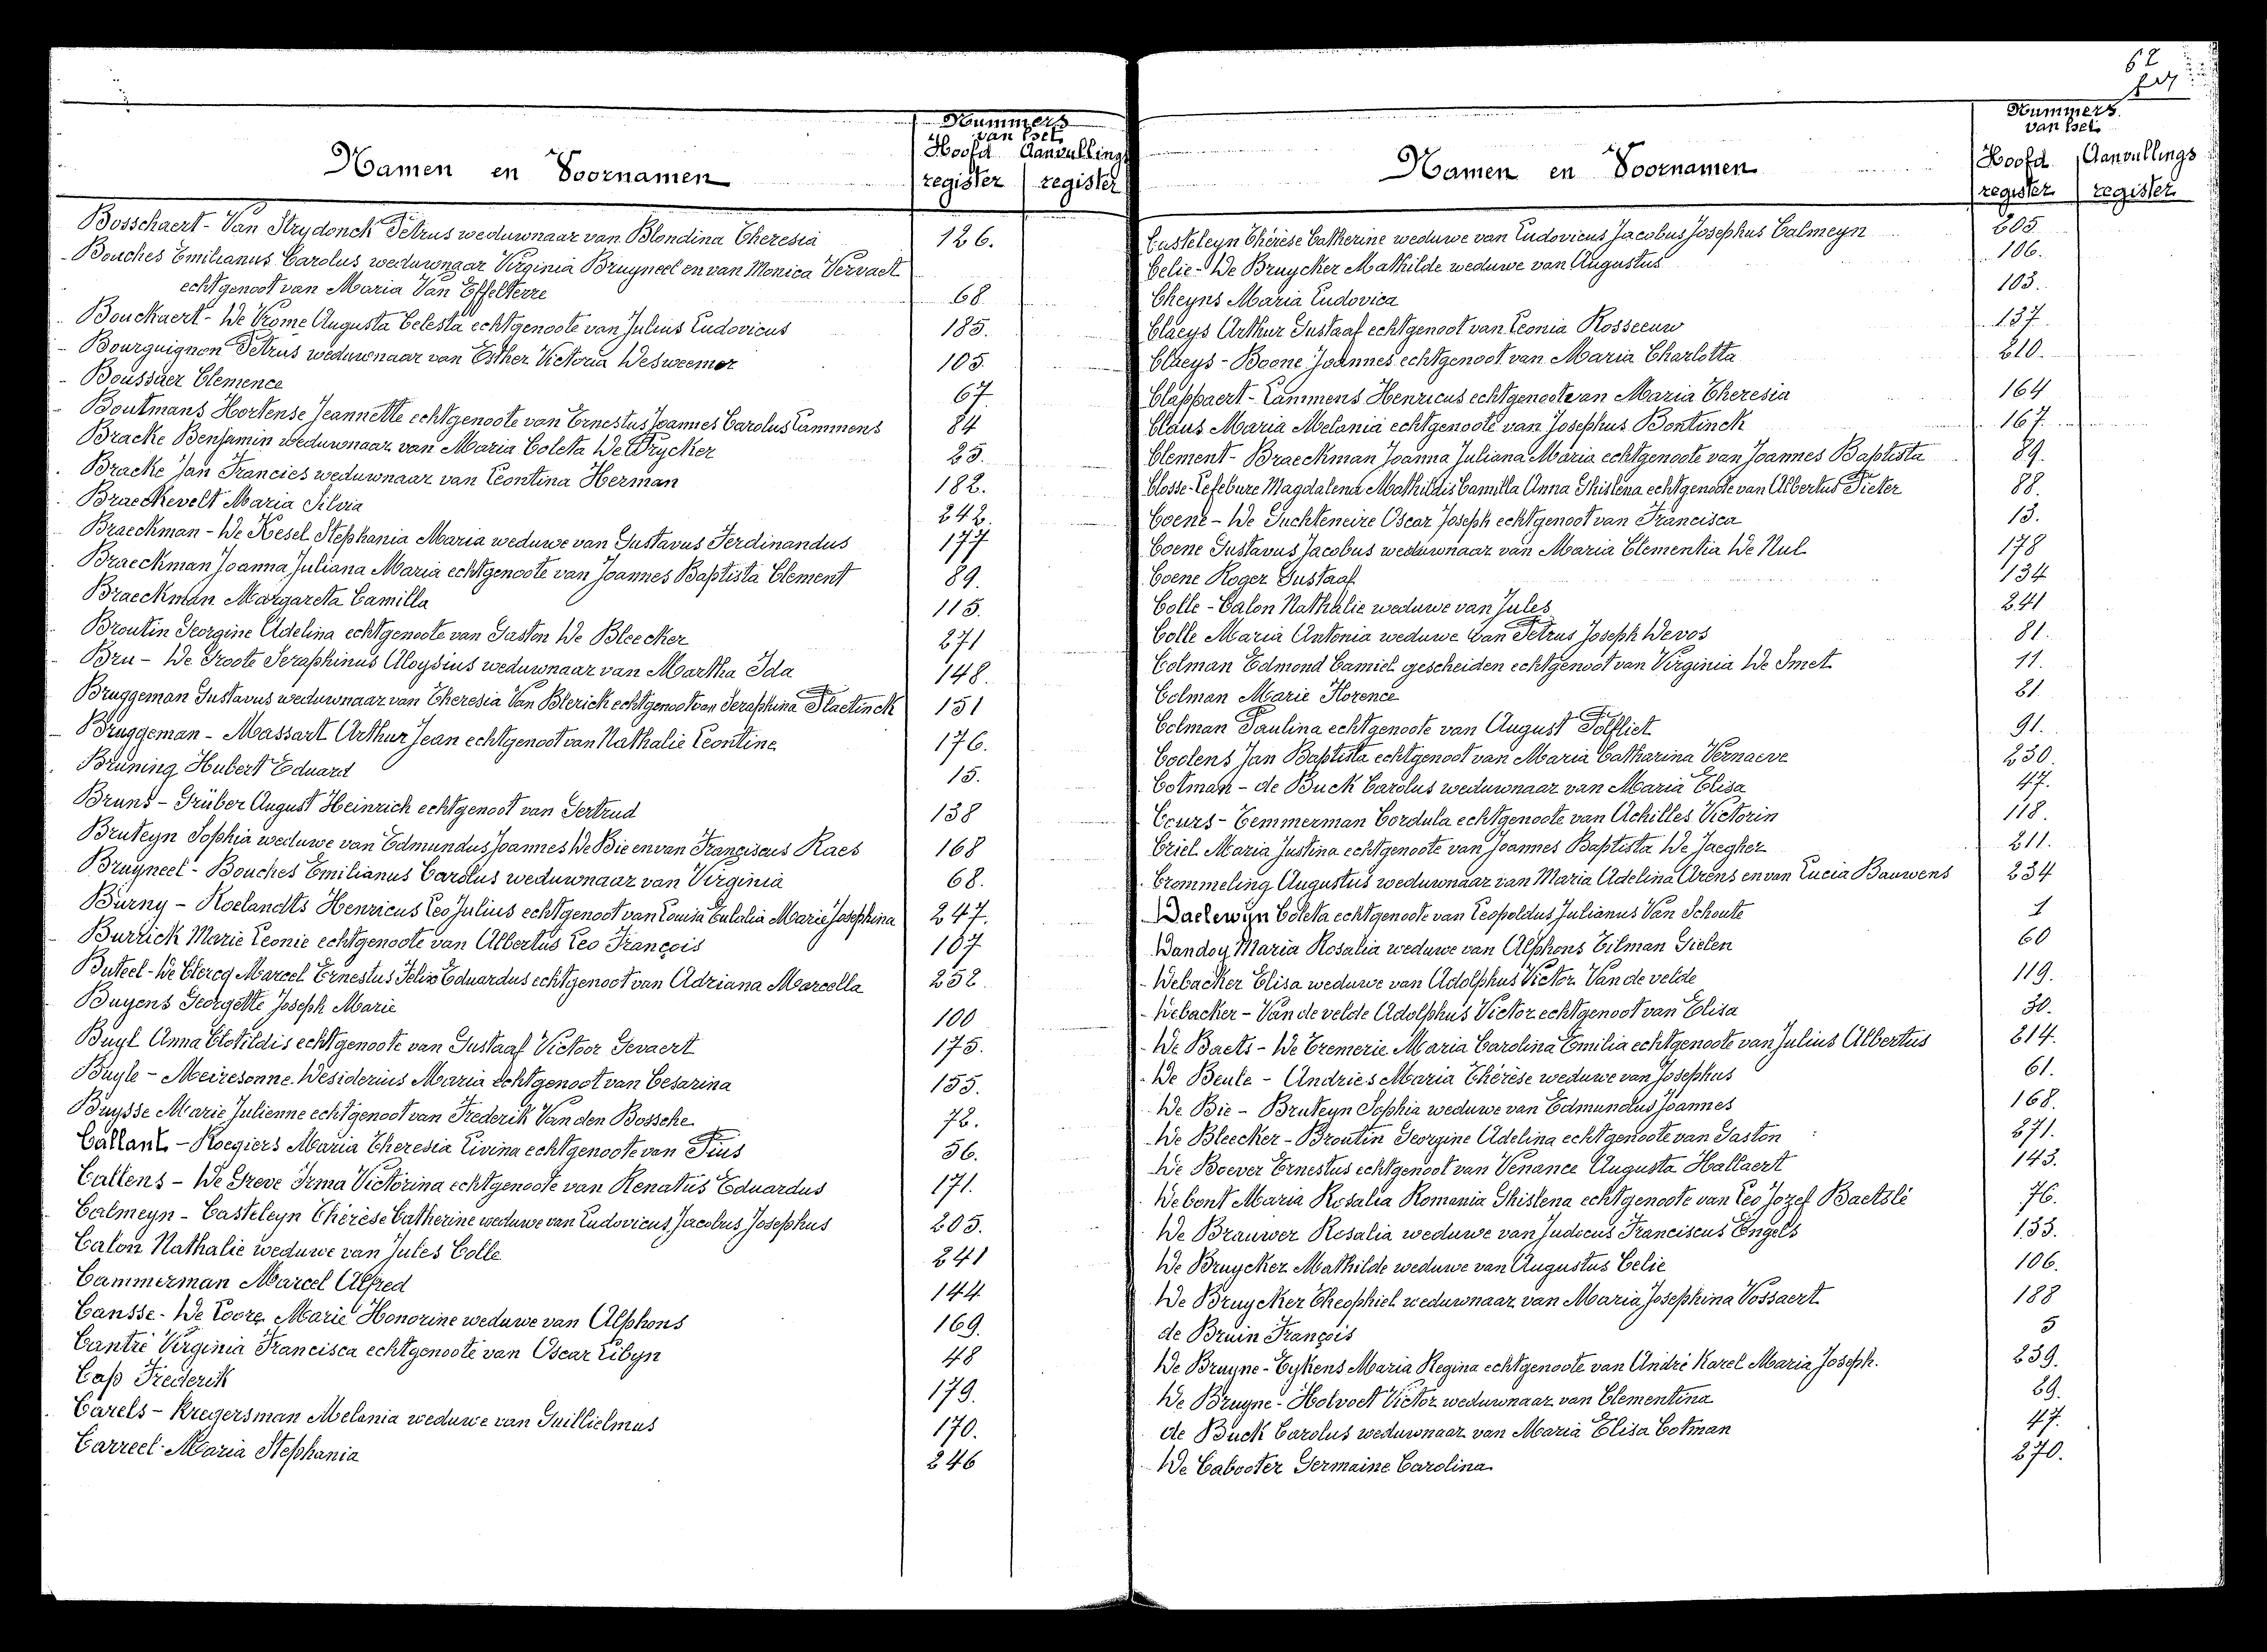 Nummers
van het
Namen en Voornamen
Hoofd Aanvullings
register register
Bosschaert - Van Strydonck Petrus weduwnaar van Blondina Theresia 126.
Bouches Emilianus Carolus weduwnaar Virginia Bruyneel en van Monica Vervaet
echtgenoot van Maria Van Effelterre 68
Bouckaert - De Vrome Augusta Celesta echtgenoote van Julius Ludovicus 185.
Bourguignon Petrus weduwnaar van Esther Victoria Desweemer 105.
Boussaer Clemence 67.
Boutmans Hortense Jeannette echtgenoote van Ernestus Joannes Carolus Lammens 84
Bracke Benjamin weduwnaar van Maria Coleta De Frycker 25.
Bracke Jan Francies weduwnaar van Leontina Herman 182.
Braeckevelt Maria Silvia 242.
Braeckman - De Kesel Stephania Maria weduwe van Gustavus Ferdinandus 177
Braeckman Joanna Juliana Maria echtgenoote van Joannes Baptista Clement 89.
Braeckman Margareta Camilla 115.
Broutin Georgine Adelina echtgenoote van Gaston De Bleecker 271
Bru - De Groote Seraphinus Aloysius weduwnaar van Martha Ida 148.
Bruggeman Gustavus weduwnaar van Theresia Van Blerick echtgenoot van Seraphina Plaetinck 151
Bruggeman - Massart Arthur Jean echtgenoot van Nathalie Leontine 176.
Brüning Hubert Eduard 15.
Bruns - Grüber August Heinrich echtgenoot van Gertrud 138
Bruteyn Sophia weduwe van Edmundus Joannes De Bie en van Franciscus Raes 168
Bruyneel - Bouches Emilianus Carolus weduwnaar van Virginia 68.
Burny - Roelandts Henricus Leo Julius echtgenoot van Louisa Eulalia Marie Josephina 247.
Burrick Marie Leonie echtgenoote van Albertus Leo François 107
Buteel - De Clercq Marcel Ernestus Felix Eduardus echtgenoot van Adriana Marcella 252.
Buyens Georgette Joseph Marie 100
Buyl Anna Clotildis echtgenoote van Gustaaf Victoor Gevaert 175.
Buyle - Meiresonne Desiderius Maria echtgenoot van Cesarina 155.
Buysse Marie Julienne echtgenoot van Frederik Van den Bossche 72.
Callant - Roegiers Maria Theresia Livina echtgenoote van Pius 56.
Callens - De Greve Irma Victorina echtgenoote van Renatus Eduardus 171.
Calmeyn - Casteleyn Thérèse Catherine weduwe van Ludovicus Jacobus Josephus 205.
Calon Nathalie weduwe van Jules Colle 241
Cammerman Marcel Alfred 144
Cansse - De Loore Marie Honorine weduwe van Alphons 169.
Cantré Virginia Francisca echtgenoote van Oscar Libyn 48
Cap Frederik 179.
Carels - Kregersman Melania weduwe van Guillielmus 170.
Carreel Maria Stephania 246
62
Nummers
van het
Namen en Voornamen
Hoofd Aanvullings
register register
Casteleyn Thérèse Catherine weduwe van Ludovicus Jacobus Josephus Calmeyn 205
Celie - De Bruycker Mathilde weduwe van Augustus 106.
Cheyns Maria Ludovica 103.
Claeys Arthur Gustaaf echtgenoot van Leonia Rosseeuw 137.
Claeys - Boone Joannes echtgenoot van Maria Charlotta 210.
Clappaert - Lammens Henricus echtgenoote van Maria Theresia 164
Claus Maria Melania echtgenoote van Josephus Bontinck 167.
Clement - Braeckman Joanna Juliana Maria echtgenoote van Joannes Baptista 89.
Closse - Lefebure Magdalena Mathildis Camilla Anna Ghislena echtgenoote van Albertus Pieter 88.
Coene - De Guchteneire Oscar Joseph echtgenoot van Francisca 13.
Coene Gustavus Jacobus weduwnaar van Maria Clementia De Nul 178
Coene Roger Gustaaf 134
Colle - Calon Nathalie weduwe van Jules 241
Colle Maria Antonia weduwe van Petrus Joseph Devos 81.
Colman Edmond Camiel gescheiden echtgenoot van Virginia De Smet 11.
Colman Marie Florence 81
Colman Paulina echtgenoote van August Polfliet 91.
Coolens Jan Baptista echtgenoot van Maria Catharina Vernaeve 230.
Cotman - de Buck Carolus weduwnaar van Maria Elisa 47.
Cours - Temmerman Cordula echtgenoote van Achilles Victorin 118.
Criel Maria Justina echtgenoote van Joannes Baptista De Jaegher 211.
Crommeling Augustus weduwnaar van Maria Adelina Arens en van Lucia Bauwens 234
Daelewyn Coleta echtgenoote van Leopoldus Julianus Van Schoute 1
Dandoy Maria Rosalia weduwe van Alphons Tilman Gielen 60
Debacker Elisa weduwe van Adolphus Victor Van de velde 119.
Debacker - Van de velde Adolphus Victor echtgenoot van Elisa 30.
De Baets - De Cremerie Maria Carolina Emilia echtgenoote van Julius Albertus 214.
De Beule - Andries Maria Thérèse weduwe van Josephus 61.
De Bie - Bruteyn Sophia weduwe van Edmundus Joannes 168.
De Bleecker - Broutin Georgine Adelina echtgenoote van Gaston 271.
De Boever Ernestus echtgenoot van Venance Augusta Hallaert 143.
Debont Maria Rosalia Romania Ghislena echtgenoote van Leo Jozef Baetslé 76.
De Brauwer Rosalia weduwe van Judocus Franciscus Engels 133.
De Bruycker Mathilde weduwe van Augustus Celie 106.
De Bruycker Theophiel weduwnaar van Maria Josephina Vossaert 188
de Bruin François 5
De Bruyne - Eykens Maria Regina echtgenoote van André Karel Maria Joseph. 239.
De Bruyne - Holvoet Victor weduwnaar van Clementina 69.
de Buck Carolus weduwnaar van Maria Elisa Cotman 47.
De Cabooter Germaine Carolina 270.